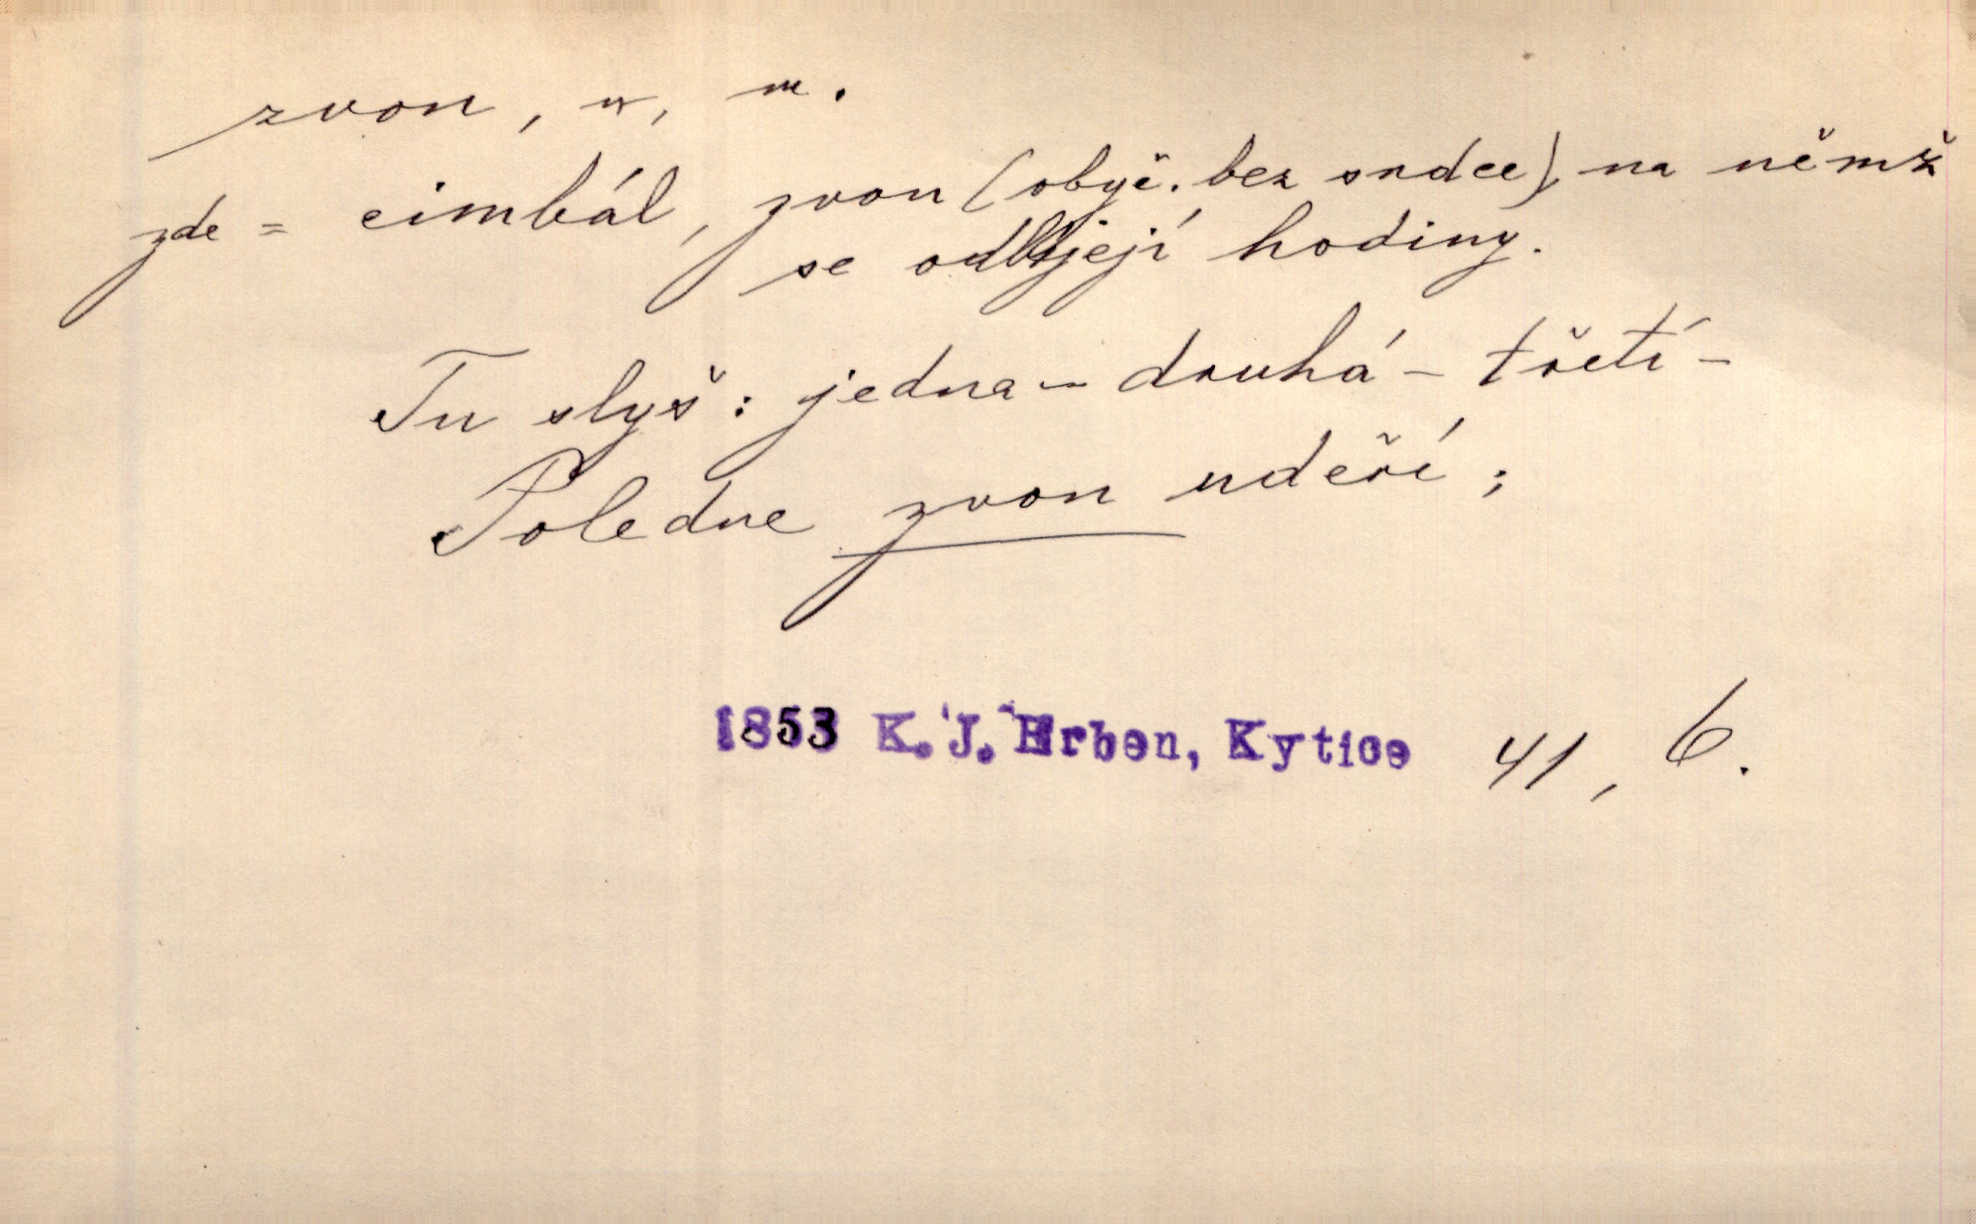 zvon, u, m.
zde = cimbál, zvon (obyč. bez srdce), na němž
se odbíjejí hodiny.
Tu slyš: jedna – druhá – třetí –
Poledne zvon udeří;
1853 K. J. Erben, Kytice 41, 6.